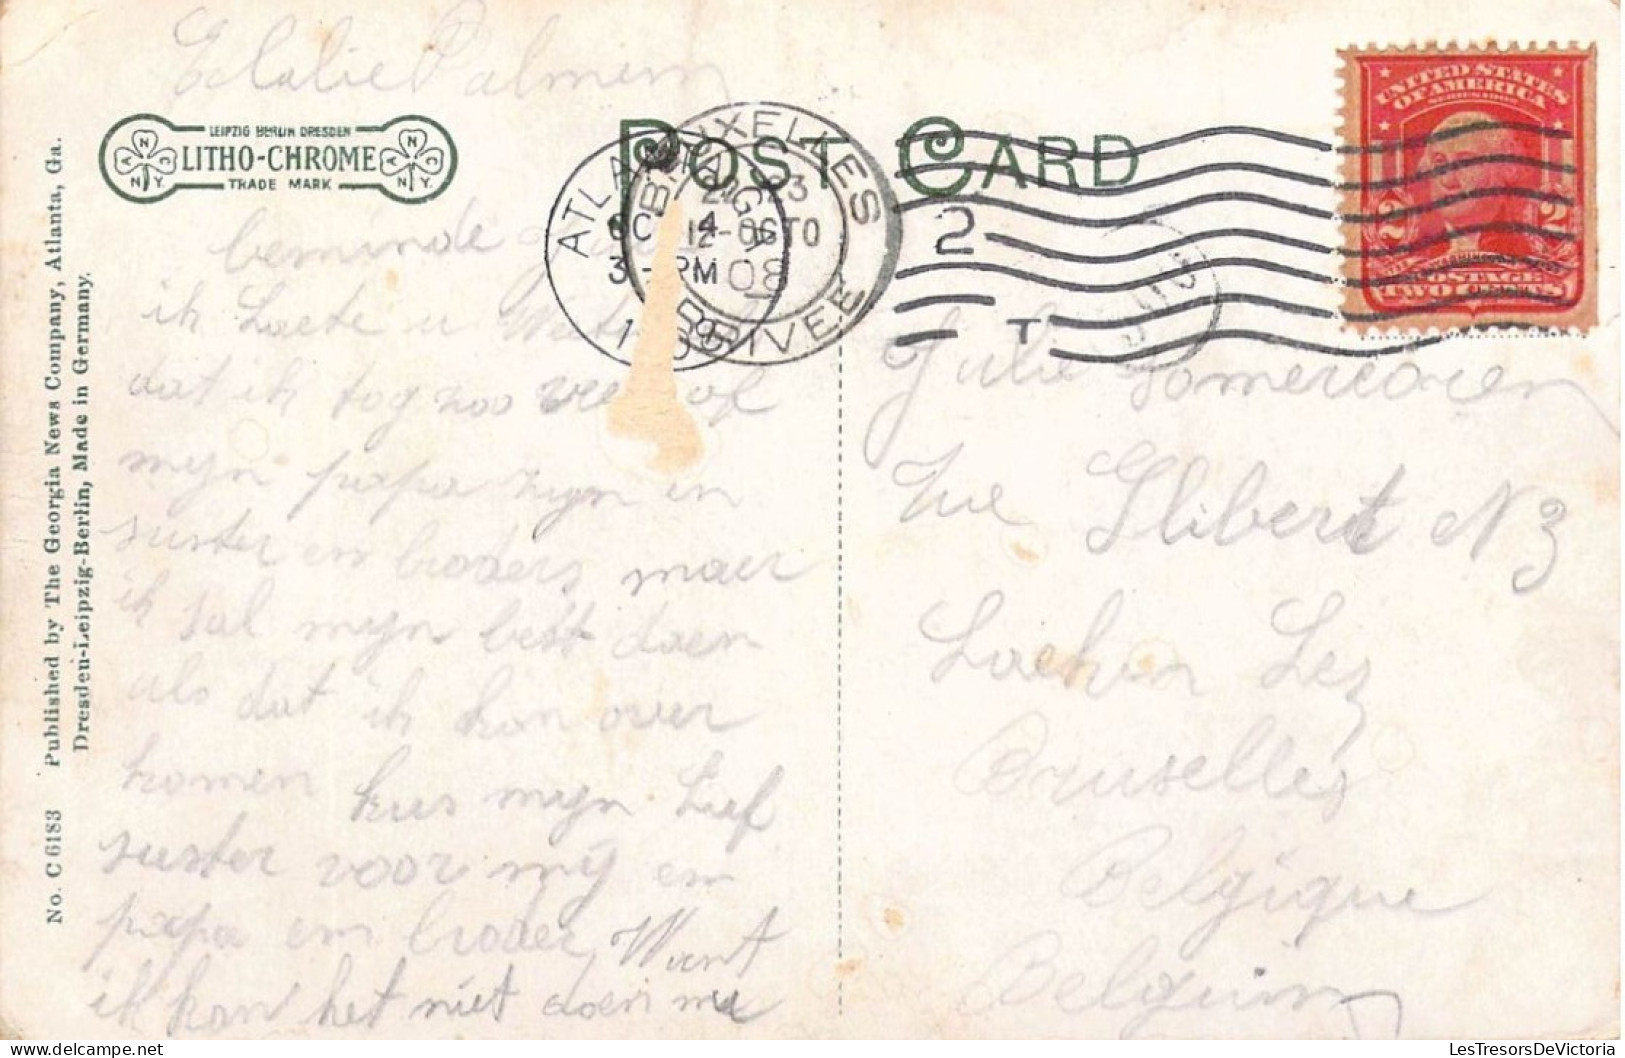 LEIPZIG BERLIN DRESDEN
LITHO-CHROME
TRADE MARK
A N C
N.Y.
POST CARD
UNITED STATES
OF AMERICA
SERIES 1902
2 2
POSTAGE
TWO CENTS
ATLANTA, GA.
OCT 4
3 - PM
BRUXELLES
12-OCTO
08
ARRIVEE
2
T
No. C 6183 Published by The Georgia News Company, Atlanta, Ga.
Dresden-Leipzig-Berlin, Made in Germany.
beminde
ik Laete u
dat ik tog zoo of
mijn papa zijn en
suster en broders maer
ik sal mijn best doen
als dat ik kan over
komen kus mijn Lief
suster voor mij en
papa en broder Want
ik kan het niet doen
Julie
Rue Glibert N 3
Laeken Lez
Bruselles
Belgique
Belgium
LesTresorsDeVictoria